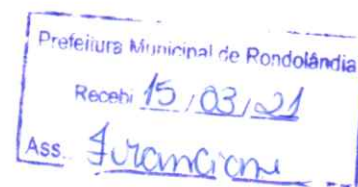 Prefeitura Municipal de Rondolândia
Recebi 15 / 03 / 21
Ass. Franciane